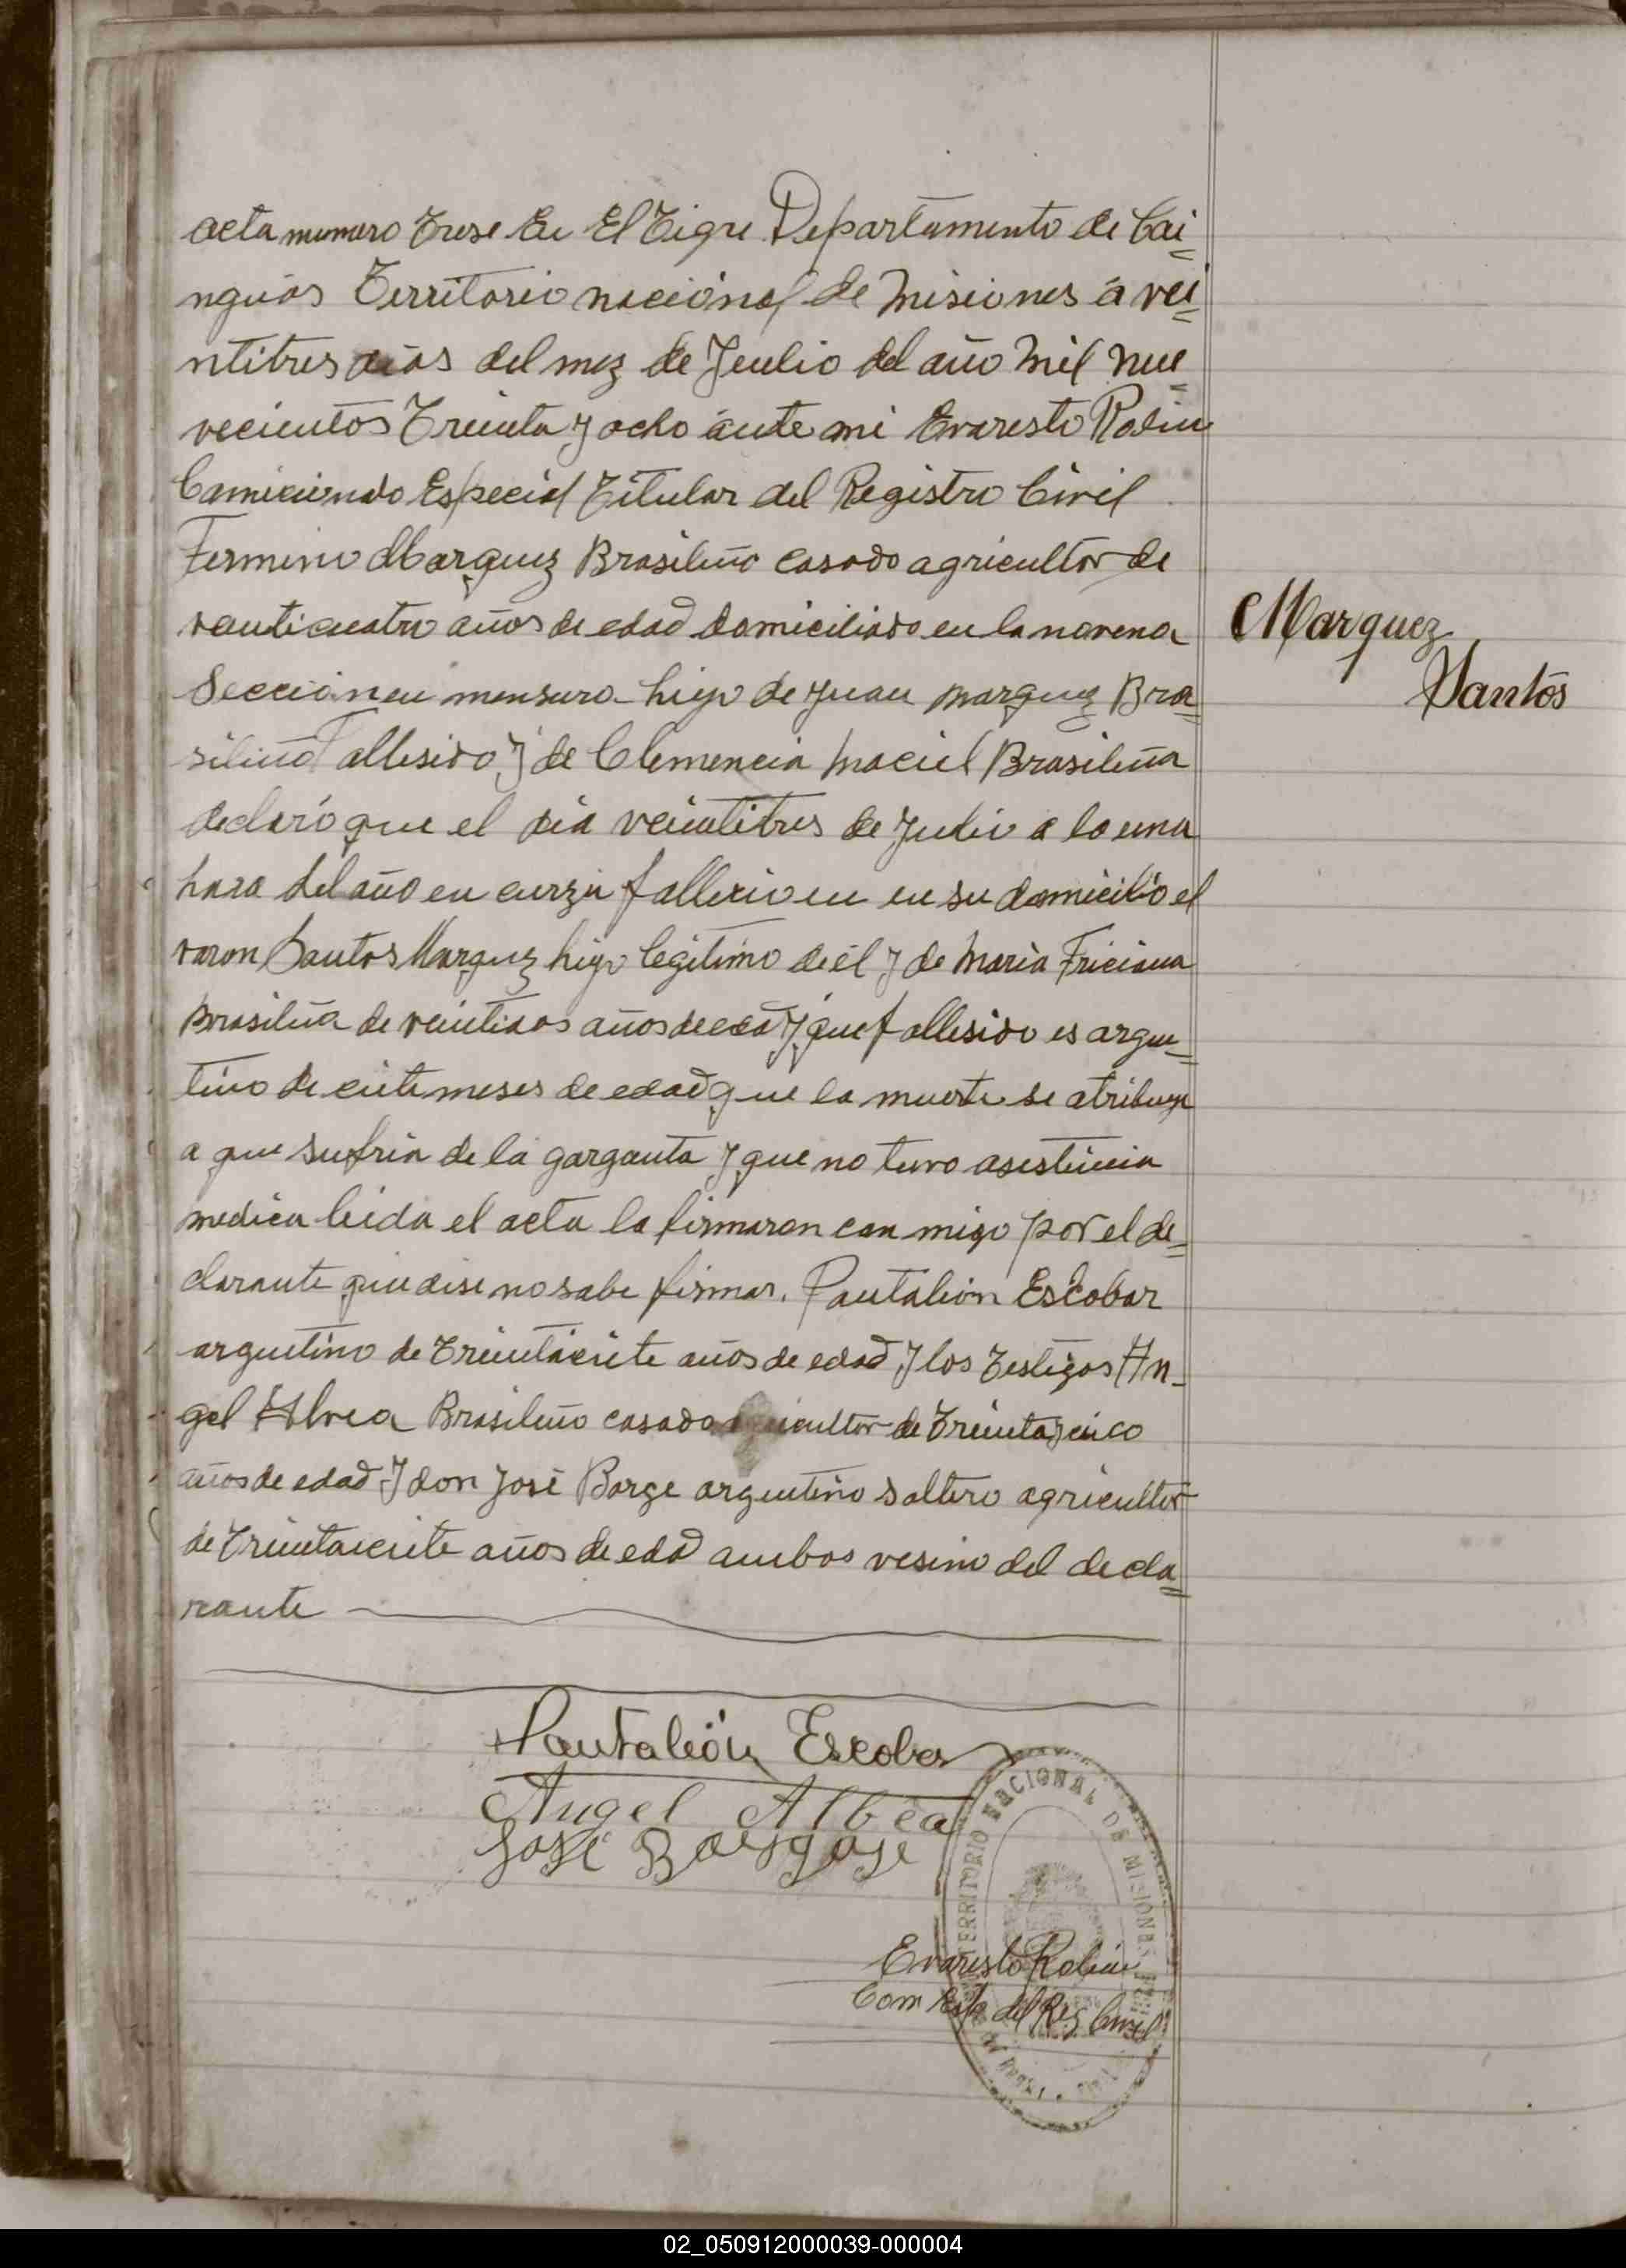 acta numero Trese En El Tigre Departamento de Cai=
nguas Territorio nacional de Misiones á vei=
ntitres dias del mez de Jeulio del año Mil nue=
vecientos Treinta y ocho ante mi Evaresto Rolin
Camicionado Especial Titular del Registro Civil
Fermino Marquez Brasileño casado agricultor de
veuticuatro años de edad domiciliado en la novena
Seccion en mensura - hijo de Juan Marquez Bra=
sileño Fallesido y de Clemencia Maciel Brasileña
declaró que el dia veintitres de Julio a la una
hara del año en curzu fallecio en en su domicilio el
varon Santos Marquez hijo legitimo de él y de Maria Friciana
Brasileña de veintidos años de edad y que fallesido es argen=
tino de ciete meses de edad que la muerte se atribuye
a que sufria de la garganta y que no tuvo asistencia
medica leida el acta la firmaron con migo por el de=
clarante que dise no sabe firmar. Pantalion Escobar
argentino de Treintaciete años de edad y los Testigos An-
gel Alvea Brasileño casado agricultor de Treintaycinco
años de edad y don José Borge argentino soltero agricultor
de Treintaciete años de edad ambos vesino del decla=
rante
Marquez
Santos
Pantalión Escobar
Angel Albea
José
Evaresto Rolin
Com Esp del Reg Civil
TERRITORIO NACIONAL DE MISIONES
02_050912000039-000004